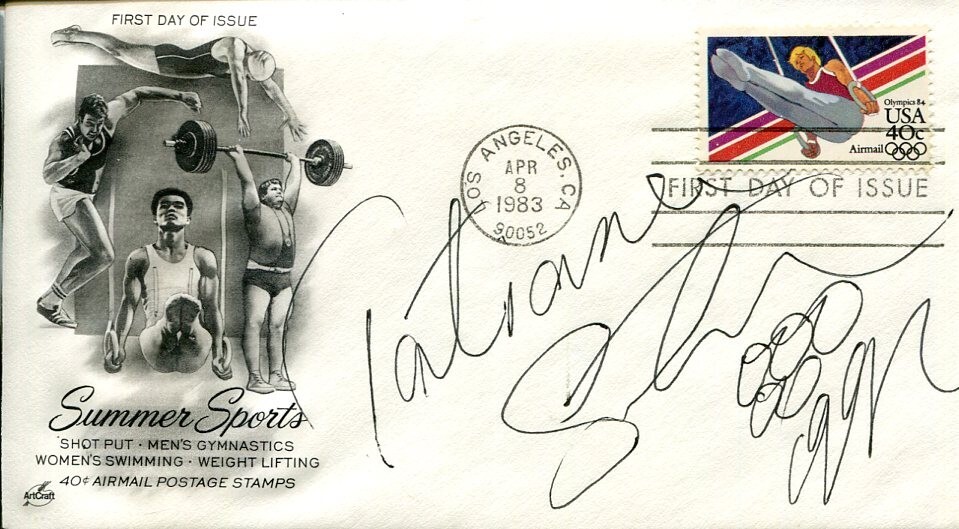 FIRST DAY OF ISSUE
Olympics 84
USA
40c
Airmail
LOS ANGELES, CA
APR
8
1983
90052
FIRST DAY OF ISSUE
Tatiana
Summer Sports
SHOT PUT · MEN'S GYMNASTICS
WOMEN'S SWIMMING · WEIGHT LIFTING
40¢ AIRMAIL POSTAGE STAMPS
ArtCraft